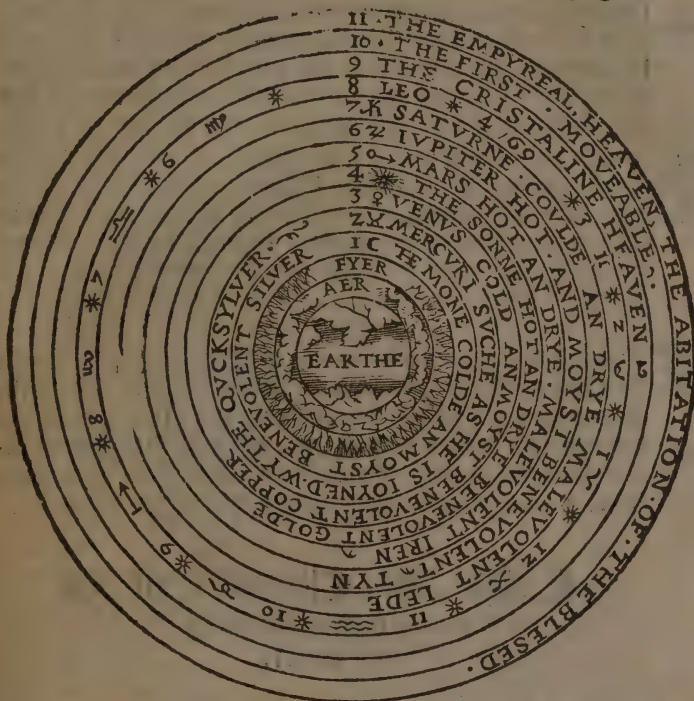 11 · THE EMPYREAL HEAVEN, THE ABITATION · OF · THE BLESED ·
10 · THE FIRST · MOVEABLE ·
9 THE CRISTALINE HEAVEN
8 LEO * 4 / 69 * 3 ♊ * 2 ♉ * 1 ♈ * 12 ♓ * 11 ♒ * 10 ♑ * 9 ♐ * 8 ♏ * 7 ♎ * 6 ♍ *
7 ♄ SATVRNE · COVLDE AN DRYE MALEVOLENT LEDE
6 ♃ IVPITER HOT · AND MOYST BENEVOLENT TYN
5 ♂ MARS HOT AN DRYE · MALEVOLENT IREN
4 THE SONME HOT AN DRYE BENEVOLENT GOLDE
3 ♀ VENVS COLD AN MOYST BENEVOLENT COPPER
2 ☿ MERCVRI SVCHE AS HE IS IOYNED · WYTHE QVCKSYLVER ·
1 ☾ THE MONE COLDE AN MOYST BENEVOLENT SILVER
FYER
AER
EARTHE